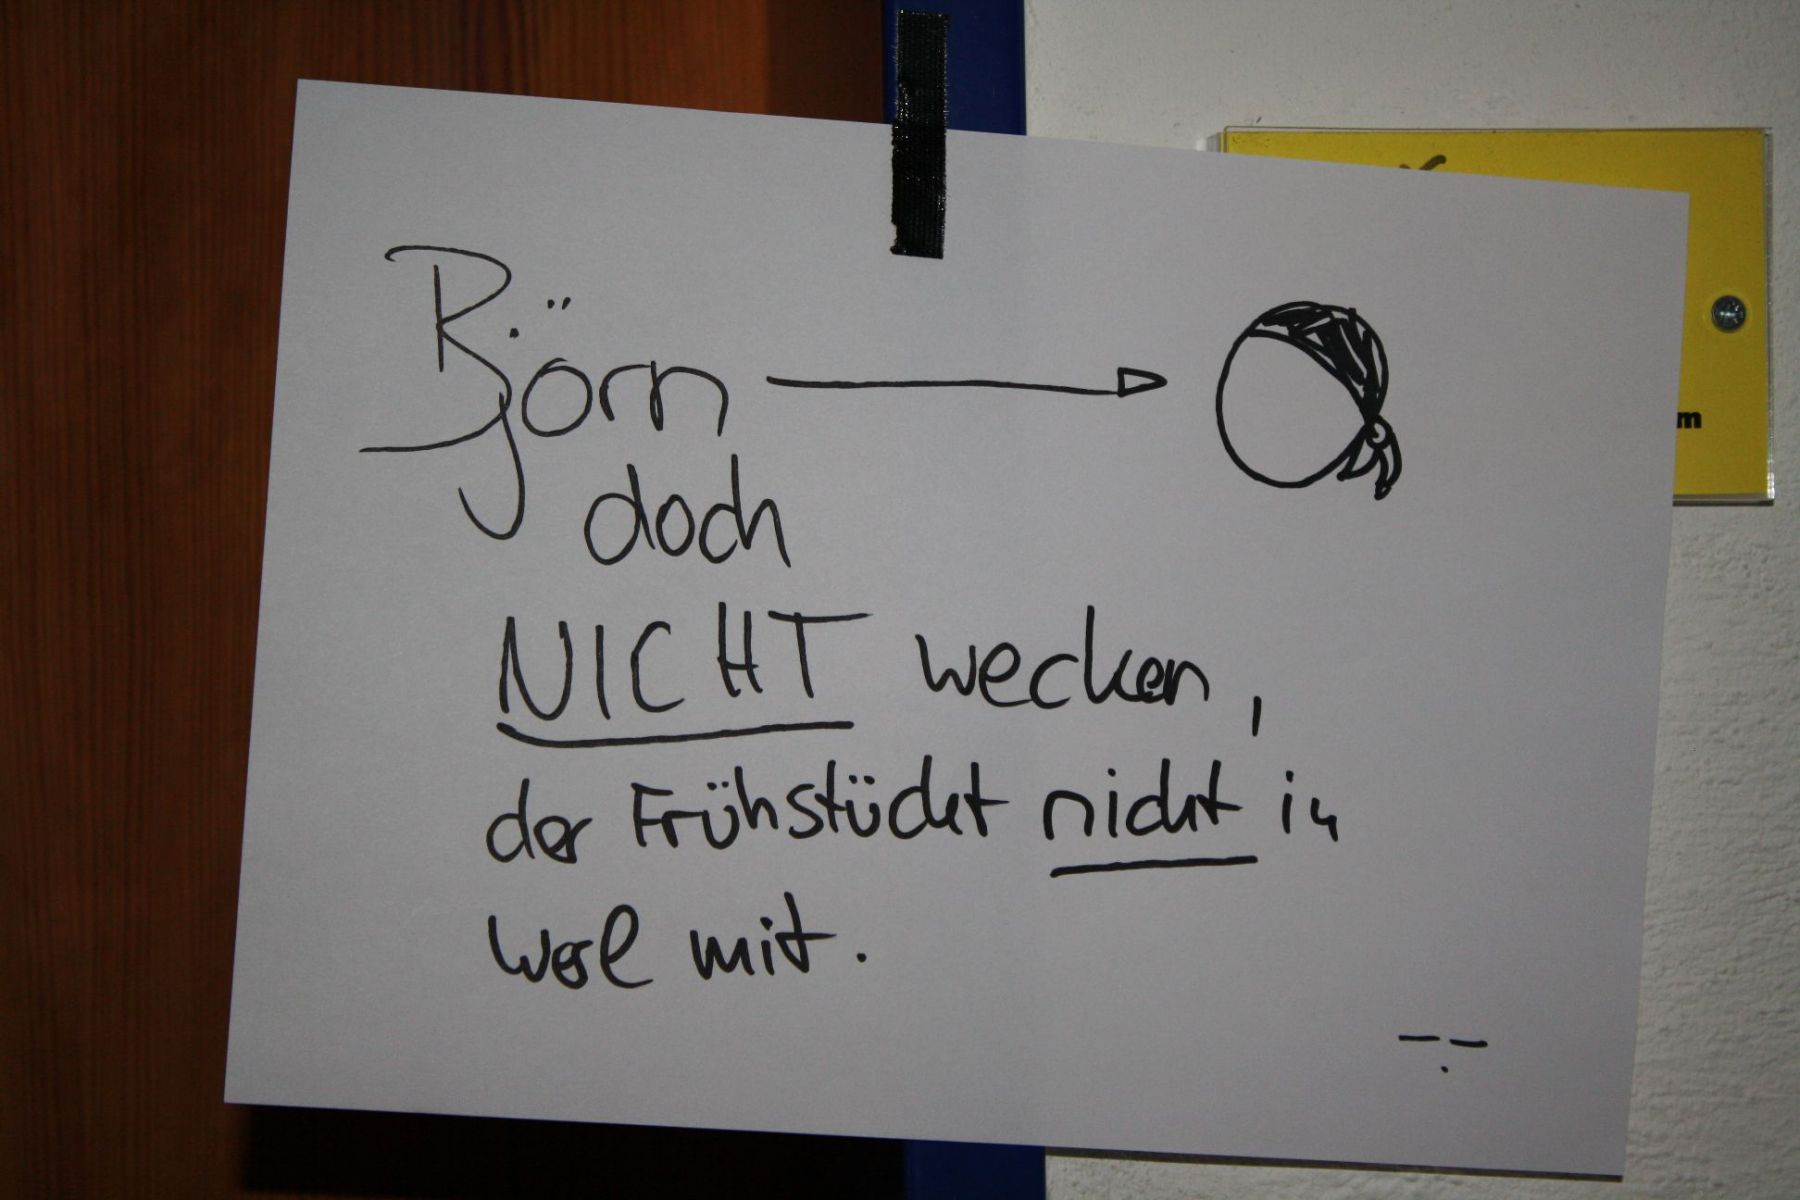 Björn
doch
NICHT wecken,
der Frühstückt nicht in
Wesel mit.
-.-
m